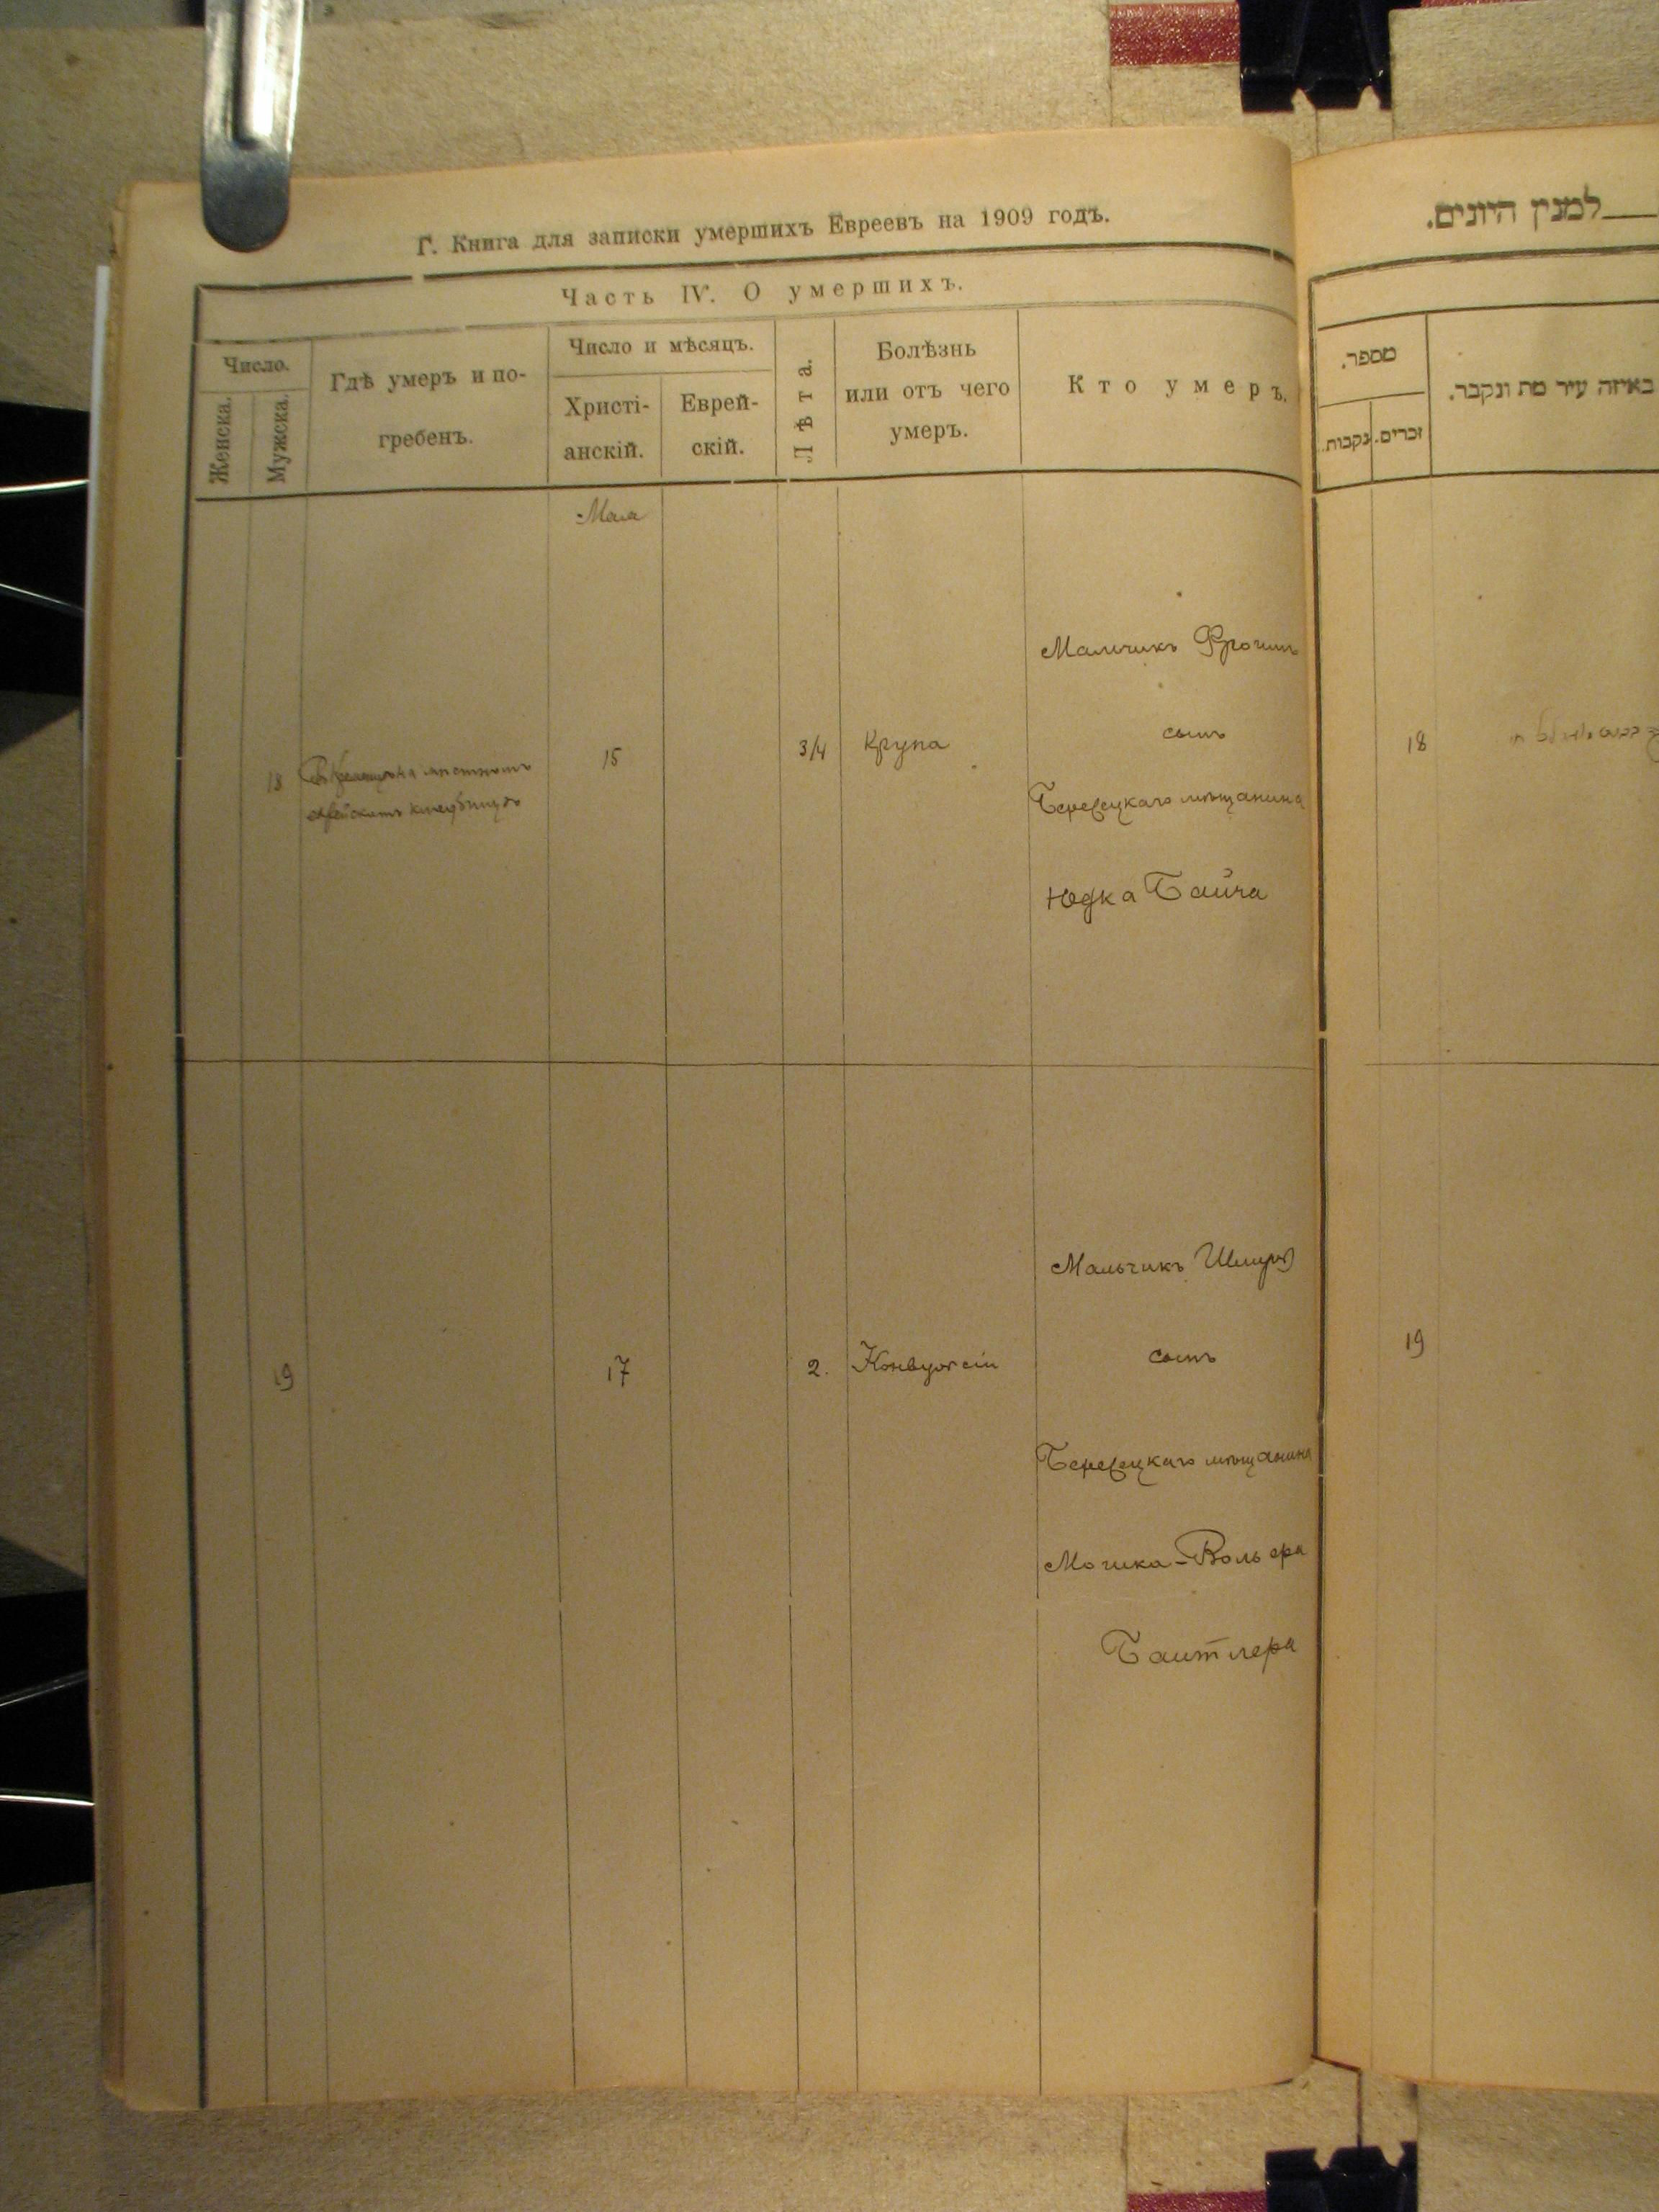 Г. Книга для записки умершихъ Евреевъ на 1909 годъ.
Часть IV. О умершихъ.
Число.
Женска.
Мужска.
Гдѣ умеръ и по-
гребенъ.
Число и мѣсяцъ.
Христі-
анскій.
Еврей-
скій.
Лѣта.
Болѣзнь
или отъ чего
умеръ.
Кто умеръ.
Мая
18
еврейскомъ кладбищѣ
15
3/4
Крупа
Мальчикъ Фроимъ
сынъ
Березецкаго мѣщанина
Юдка Байча
19
17
2.
Конвульсіи
Мальчикъ
сынъ
Березецкаго мѣщанина
Мошка-Вольфа
למנין היונים.
מספר.
נקבות.
זכרים.
באיזה עיר מת ונקבר.
18
19